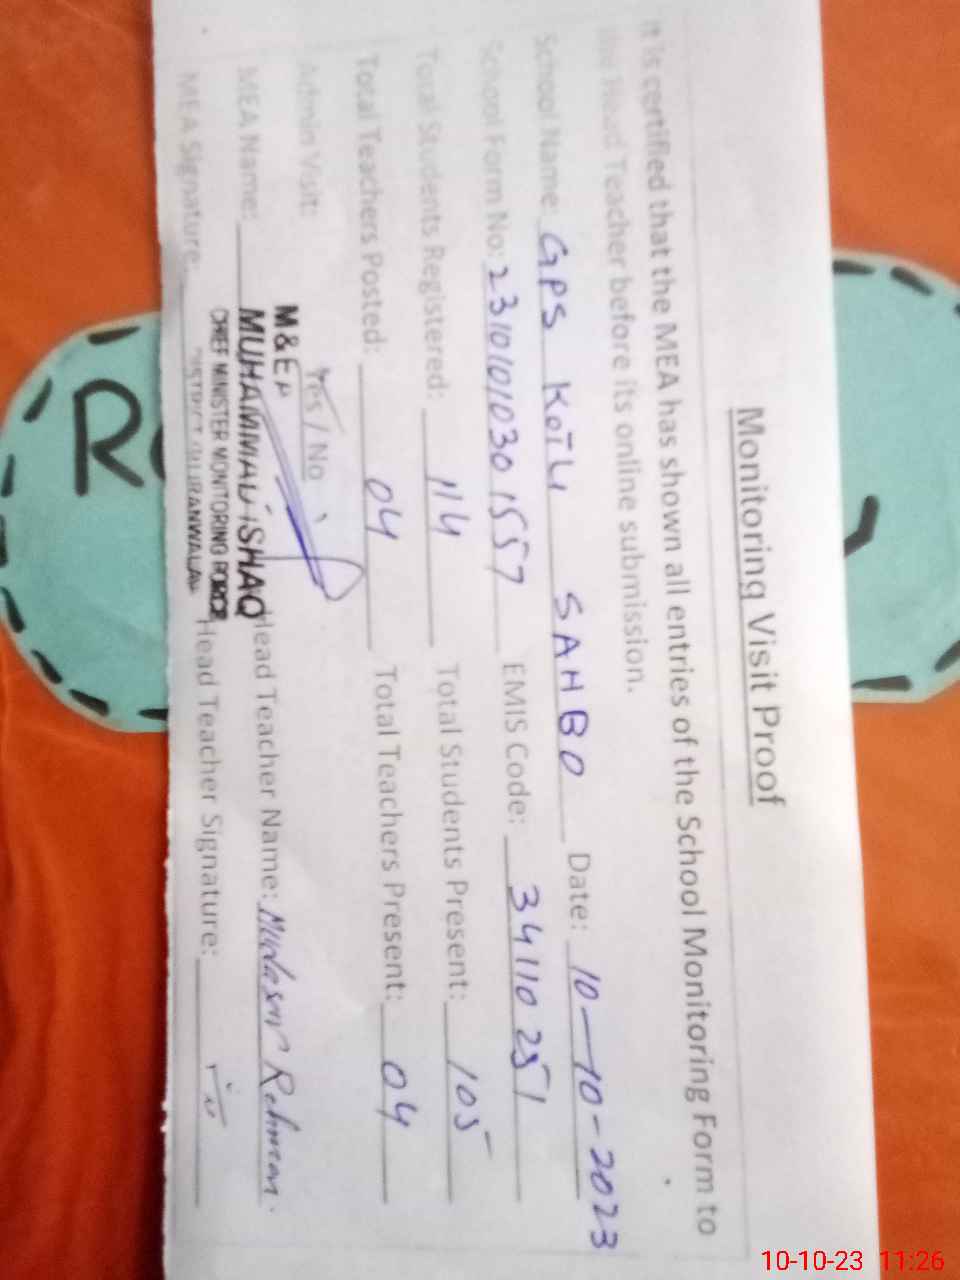 Monitoring Visit Proof
It is certified that the MEA has shown all entries of the School Monitoring Form to
the Head Teacher before its online submission.
School Name: GPS KOTLI SAHBO Date: 10-10-2023
School Form No: 2310101030 1557 EMIS Code: 34110251
Total Students Registered: 114 Total Students Present: 105
Total Teachers Posted: 04 Total Teachers Present: 04
Admin Visit: Yes / No
M&EA
MEA Name: MUHAMMAD ISHAQ Head Teacher Name: Mudasar Rehman
CHIEF MINISTER MONITORING FORCE
MEA Signature: DISTRICT GUJRANWALA Head Teacher Signature:
10-10-23 11:26